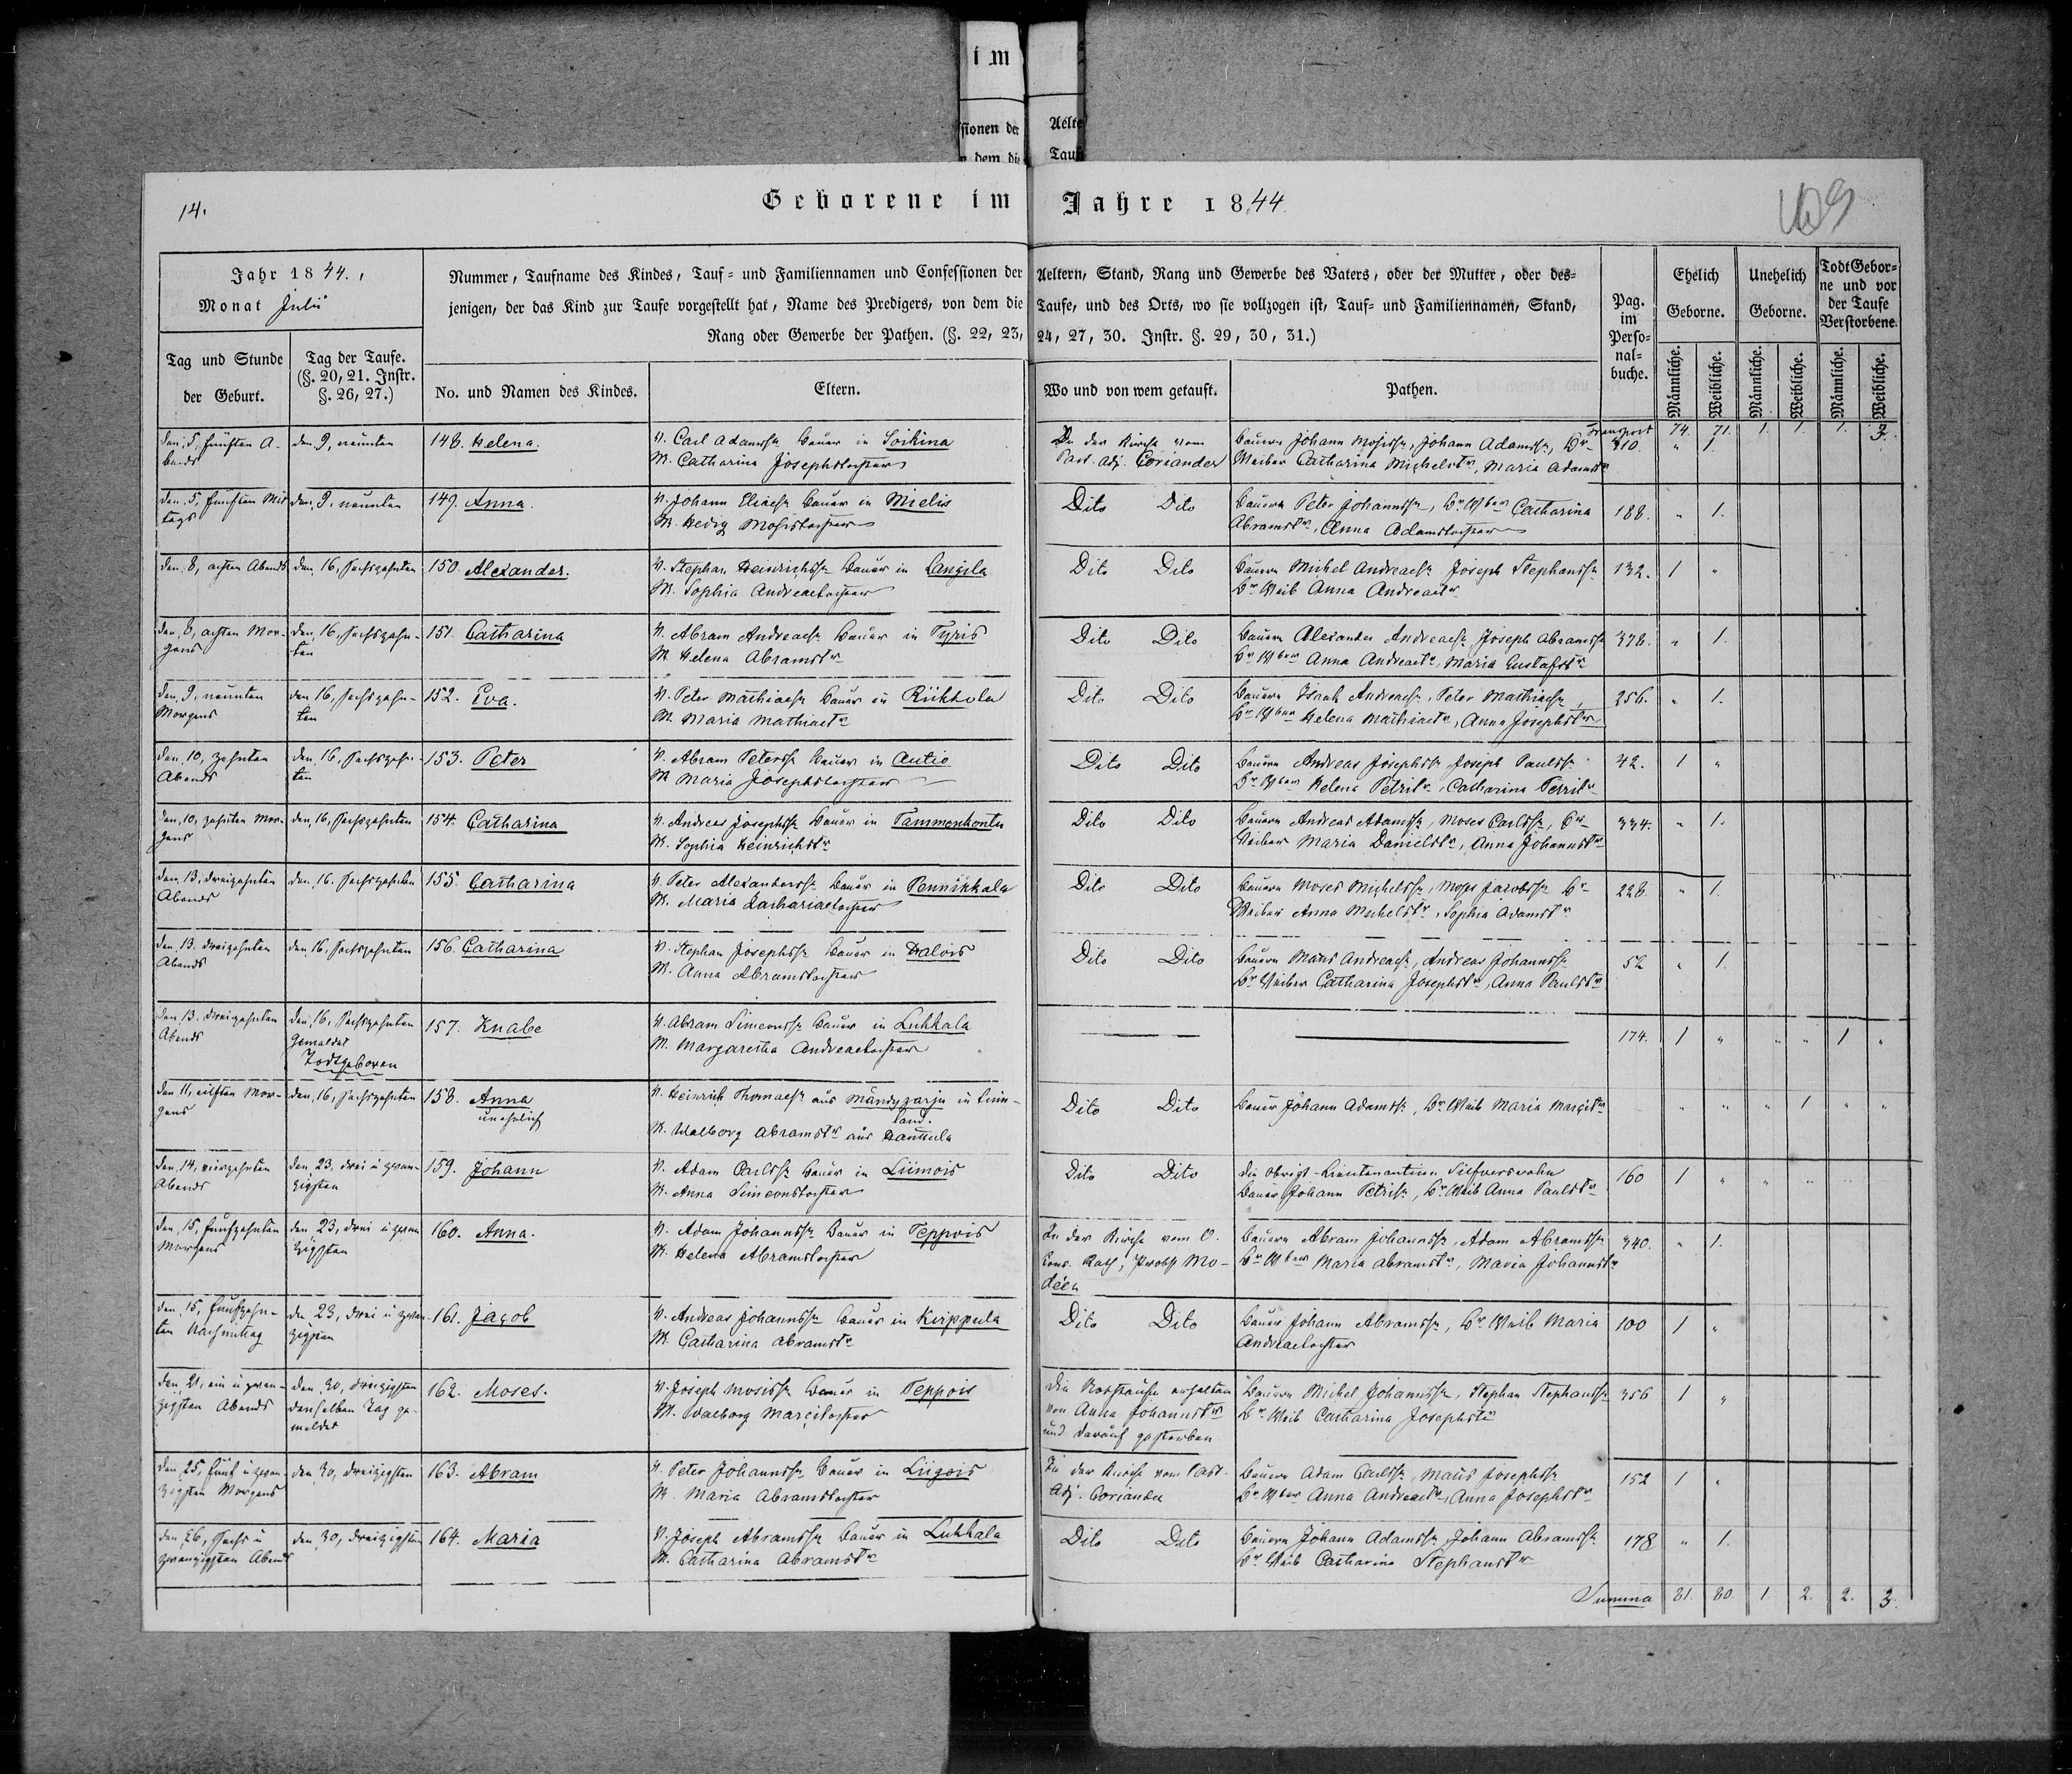 im
ſionen der
n dem die
Aelte
Tauf
14.
Geborene im Jahre 1844.
109
Jahr 1844.,
Monat Julii
Nummer, Taufname des Kindes, Tauf- und Familiennamen und Confeſſionen der Aeltern, Stand, Rang und Gewerbe des Vaters, oder der Mutter, oder des-
jenigen, der das Kind zur Taufe vorgeſtellt hat, Name des Predigers, von dem die Taufe, und des Orts, wo ſie vollzogen iſt, Tauf- und Familiennamen, Stand,
Rang oder Gewerbe der Pathen. (§. 22, 23, 24, 27, 30. Inſtr. §. 29, 30, 31.)
Pag.
im
Perſo-
nal-
buche.
Ehelich
Geborne.
Unehelich
Geborne.
Todt Gebor-
ne und vor
der Taufe
Verſtorbene.
Tag und Stunde
der Geburt.
Tag der Taufe.
(§. 20, 21. Inſtr.
§. 26, 27.)
No. und Namen des Kindes.
Eltern.
Wo und von wem getauft.
Pathen.
Männliche.
Weibliche.
Männliche.
Weibliche.
Männliche.
Weibliche.
Transport 74. 71. 1. 1. 1. 3.
den 5, fünften A-
bends
den 9, neunten
148. Helena.
V. Carl Adamssn Bauer in Soikina
M. Catharina Josephstochter
In der Kirche vom
Past. adj. Coriander
Bauern Johann Mosissn, Johann Adamssn, Br
Weiber Catharina Michelstr, Maria Adamstr
210. " 1.
den 5, fünften Mit
tags
den 9, neunten
149. Anna.
V. Johann Eliaesn Bauer in Mielis
M. Hedig Mosistochter
Dito Dito
Bauern Peter Johannssn, Br Wber Catharina
Abramstr, Anna Adamstochter
188. " 1.
den 8, achten Abends
den 16, sechszehnten
150. Alexander.
V. Stephan Heinrichssn Bauer in
M. Sophia Andreaetochter
Dito Dito
Bauern Michel Andreaesn Joseph Stephanssn
Br Weib Anna Andreaetr
132. 1 "
den 8, achten Mor-
gens
den 16, sechszehn-
ten
151. Catharina
V. Abram Andreaesn Bauer in Tyris
M. Helena Abramstr
Dito Dito
Bauern Alexander Andreaesn Joseph Abramssn
Br Wber Anna Andreaetr, Maria Gustafstr
378. " 1.
den 9, neunten
Morgens
den 16, sechszehn-
ten
152. Eva.
V. Peter Mathiaesn Bauer in Riikkola
M. Maria Mathiaetr
Dito Dito
Bauern Isaak Andreaesn, Peter Mathiaesn,
Br Wber Helena Mathiaetr, Anna Josephstr
256. " 1.
den 10, zehnten
Abends
den 16, sechszehn-
ten
153. Peter
V. Abram Peterssn Bauer in Autio
M. Maria Josephstochter
Dito Dito
Bauern Andreas Josephssn Joseph Paulssn
Br Wber Helena Petritr, Catharina Petritr
42. 1 "
den 10, zehnten Mor-
gens
den 16, sechszehnten
154. Catharina
V. Andreas Josephssn Bauer in Tammenkontu
M. Sophia Heinrichstr
Dito Dito
Bauern Andreas Adamssn, Moses Carlssn, Br
Weiber Maria Danielstr, Anna Johannstr
334. " 1.
den 13, dreizehnten
Abends
den 16. sechszehnten
155. Catharina
V. Peter Alexanderssn Bauer in Pennikkala
M. Maria Zachariaetochter
Dito Dito
Bauern Moses Michelssn, Moses Jacobssn Br
Weiber Anna Michelstr, Sophia Adamstr
228. " 1.
den 13. dreizehnten
Abends
den 16, sechszehnten
156. Catharina
V. Stephan Josephssn Bauer in
M. Anna Abramstochter
Dito Dito
Bauern Mats Andreaesn, Andreas Johannssn
Br Weiber Catharina Josephstr, Anna Paulstr
52 " 1.
den 13. dreizehnten
Abends
den 16, sechszehnten
Gemeldet
Todtgeboren
157. Knabe
V. Abram Simeonssn Bauer in Luhkala
M. Margaretha Andreaetochter
174. 1 " " " 1 "
den 11, eilften Mor-
gens
den 16, sechszehnten
158. Anna
unehelich
V. Heinrich Thomaesn aus Mändyharju in Finn-
land.
M. Walborg Abramstr aus Hauttula
Dito Dito
Bauer Johann Adamssn, Br Weib Maria Marcitr
" " " 1 " "
den 14, vierzehnten
Abends
den 23, drei u zwan-
zigsten
159. Johann
V. Adam Carlssn Bauer in Liimois
M. Anna Simeonstochter
Dito Dito
die Obrigst-Lieutenantinn
Bauer Johann Petrisn, Br Weib Anna Paulstr
160 1 " " " "
den 15, fünfzehnten
Morgens
den 23, drei u zwan
zigsten
160. Anna.
V. Adam Johannssn Bauer in Teppois
M. Helena Abramstochter
In der Kirche vom O.
Cons. Rath, Probst Mo-
déen
Bauern Abram Johannssn, Adam Abramssn
Br Wber Maria Abramstr, Maria Johannstr
340. " 1.
den 15, fünfzehn-
ten Nachmittag
den 23, drei u zwan-
zigsten
161. Jacob
V. Andreas Johannssn Bauer in Kirppula
M. Catharina Abramstr
Dito Dito
Bauer Johann Abramssn, Br Weib Maria
Andreaetochter
100 1 "
den 21, ein u zwan-
zigsten Abends
den 30, dreizigsten
denselben Tag ge-
meldet
162. Moses.
V. Joseph Mosissn Bauer in Teppois
M. Walborg Marcitochter
Die Nothtaufe erhalten
von Anna Johannstr
und darauf gestorben
Bauern Michel Johannssn, Stephan Stephanssn
Br Weib Catharina Josephstr
356 1 "
den 25, fünf u zwan-
zigsten Morgens
den 30, dreizigsten
163. Abram
V. Peter Johannssn Bauer in Liigois
M. Maria Abramstochter
In der Kirche vom Past.
Adj. Coriander
Bauern Adam Carlssn, Mats Josephssn
Br Wber Anna Andreaetr, Anna Josephstr
152 1 "
den 26, sechs u
zwanzigsten Abend
den 30, dreizigsten
164. Maria
V. Joseph Abramssn Bauer in Luhkala
M. Catharina Abramstr
Dito Dito
Bauern Johann Adamssn, Johann Abramssn
Br Weib Catharina Stephanstr
178 " 1.
Summa 81. 80. 1. 2. 2. 3.